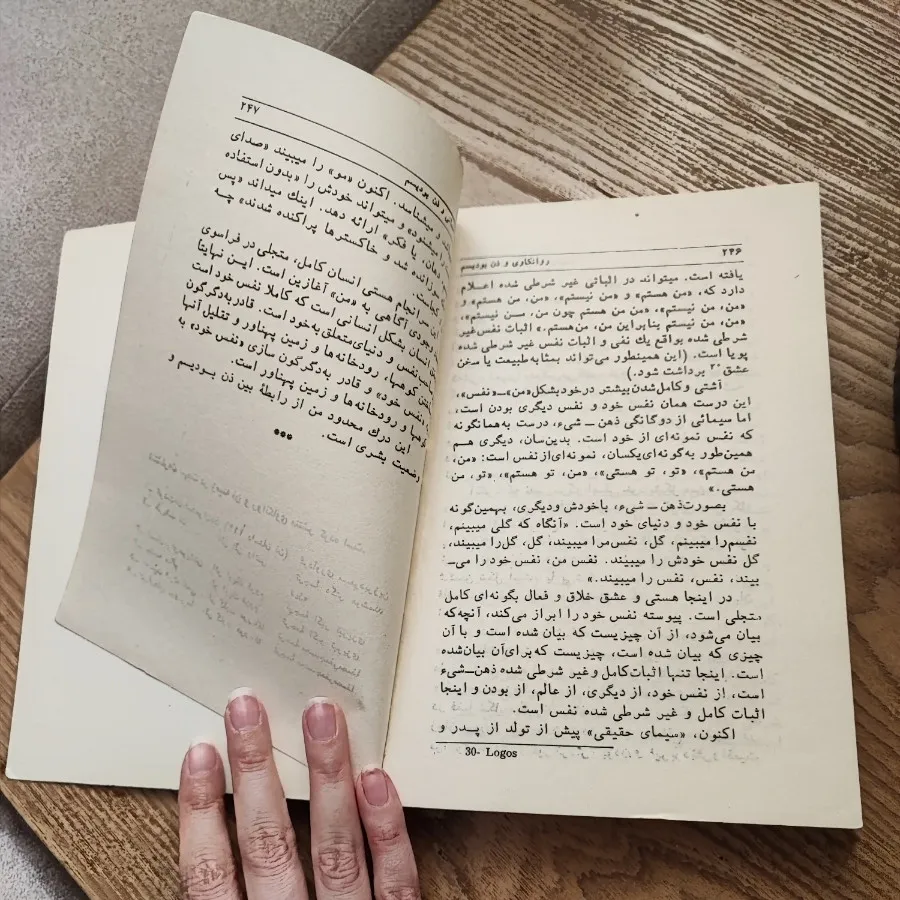 ۲۴۶
روانکاوی و ذن بودیسم
یافته است. میتواند در اثباتی غیر شرطی شده اعلام
دارد که، «من هستم» و «من نیستم»، «من، من هستم» و
«من، من نیستم»، «من من هستم چون من، مــن نیستم»،
«من، من نیستم بنابراین من، من‌هستم.» اثبات نفس‌غیر
شرطی شده بواقع یك نفی و اثبات نفس غیر شرطی شده
پویا است. (این همینطور می‌تواند بمثابه‌طبیعت یا سخن
عشق ۳۰ برداشت شود.)
آشتی وکامل‌شدن‌بیشتر درخودبشکل «من»ــ«نفس»،
این درست همان نفس خود و نفس دیگری بودن است،
اما سیمائی از دوگانگی ذهن ــ شیء، درست به‌همانگونه
که نفس نمونه‌ای از خود است. بدین‌سان، دیگری هــم
همین‌طور به‌گونه‌ای‌یکسان، نمونه‌ای‌از نفس است: «من،
من هستم»، «تو، تو هستی»، «من، تو هستم»، «تو، من
هستی.»
بصورت‌ذهن ــ شیء، باخودش ودیگری، بهمین‌گونه
با نفس خود و دنیای خود است. «آنگاه که گلی میبینم،
نفسم‌را میبینم، گل، نفس‌مرا میبیند، گل، گل‌را میبیند،
گل نفس خودش را میبیند. نفس من، نفس خود را می‌ــ
بیند، نفس، نفس را میبیند.»
در اینجا هستی و عشق خلاق و فعال بگونه‌ای کامل
متجلی است. پیوسته نفس خود را ابراز می‌کند، آنچه‌که
بیان می‌شود، از آن چیزیست که بیان شده است و با آن
چیزی که بیان شده است، چیزیست که‌برای‌آن بیان‌شده
است. اینجا تنها اثبات‌کامل وغیر شرطی شده ذهن‌ــ‌شیء
است، از نفس خود، از دیگری، از عالم، از بودن و اینجا
اثبات کامل و غیر شرطی شده نفس است.
اکنون، «سیمای حقیقی» پیش از تولد از پدر و
30- Logos
۲۴۷
ذن بودیسم
میشناسد. اکنون «مو» را میبیند «صدای
میشنود» و میتواند خودش را «بدون استفاده
زبان، یا فکر» ارائه دهد. اینك میداند «پس
سوزانده شد و خاکسترها پراکنده شدند» چــه
کجاست.
این سرانجام هستی انسان کامل، متجلی در فراسوی
وجودی آگاهی به «من» آغازین است. این نهایتاً
انسان بشکل انسانی است که کاملا نفس خود است
صاحب‌نفس و دنیای‌متعلق‌به‌خود است. قادربه‌دگرگون
کوهها، رودخانه‌ها و زمین پهناور و تقلیل آنها
نفس خود» و قادر به‌دگرگون سازی «نفس خود» به
کوهها و رودخانه‌ها و زمین پهناور است.
این درك محدود من از رابطهٔ بین ذن بودیسم و
وضعیت بشری است.
***